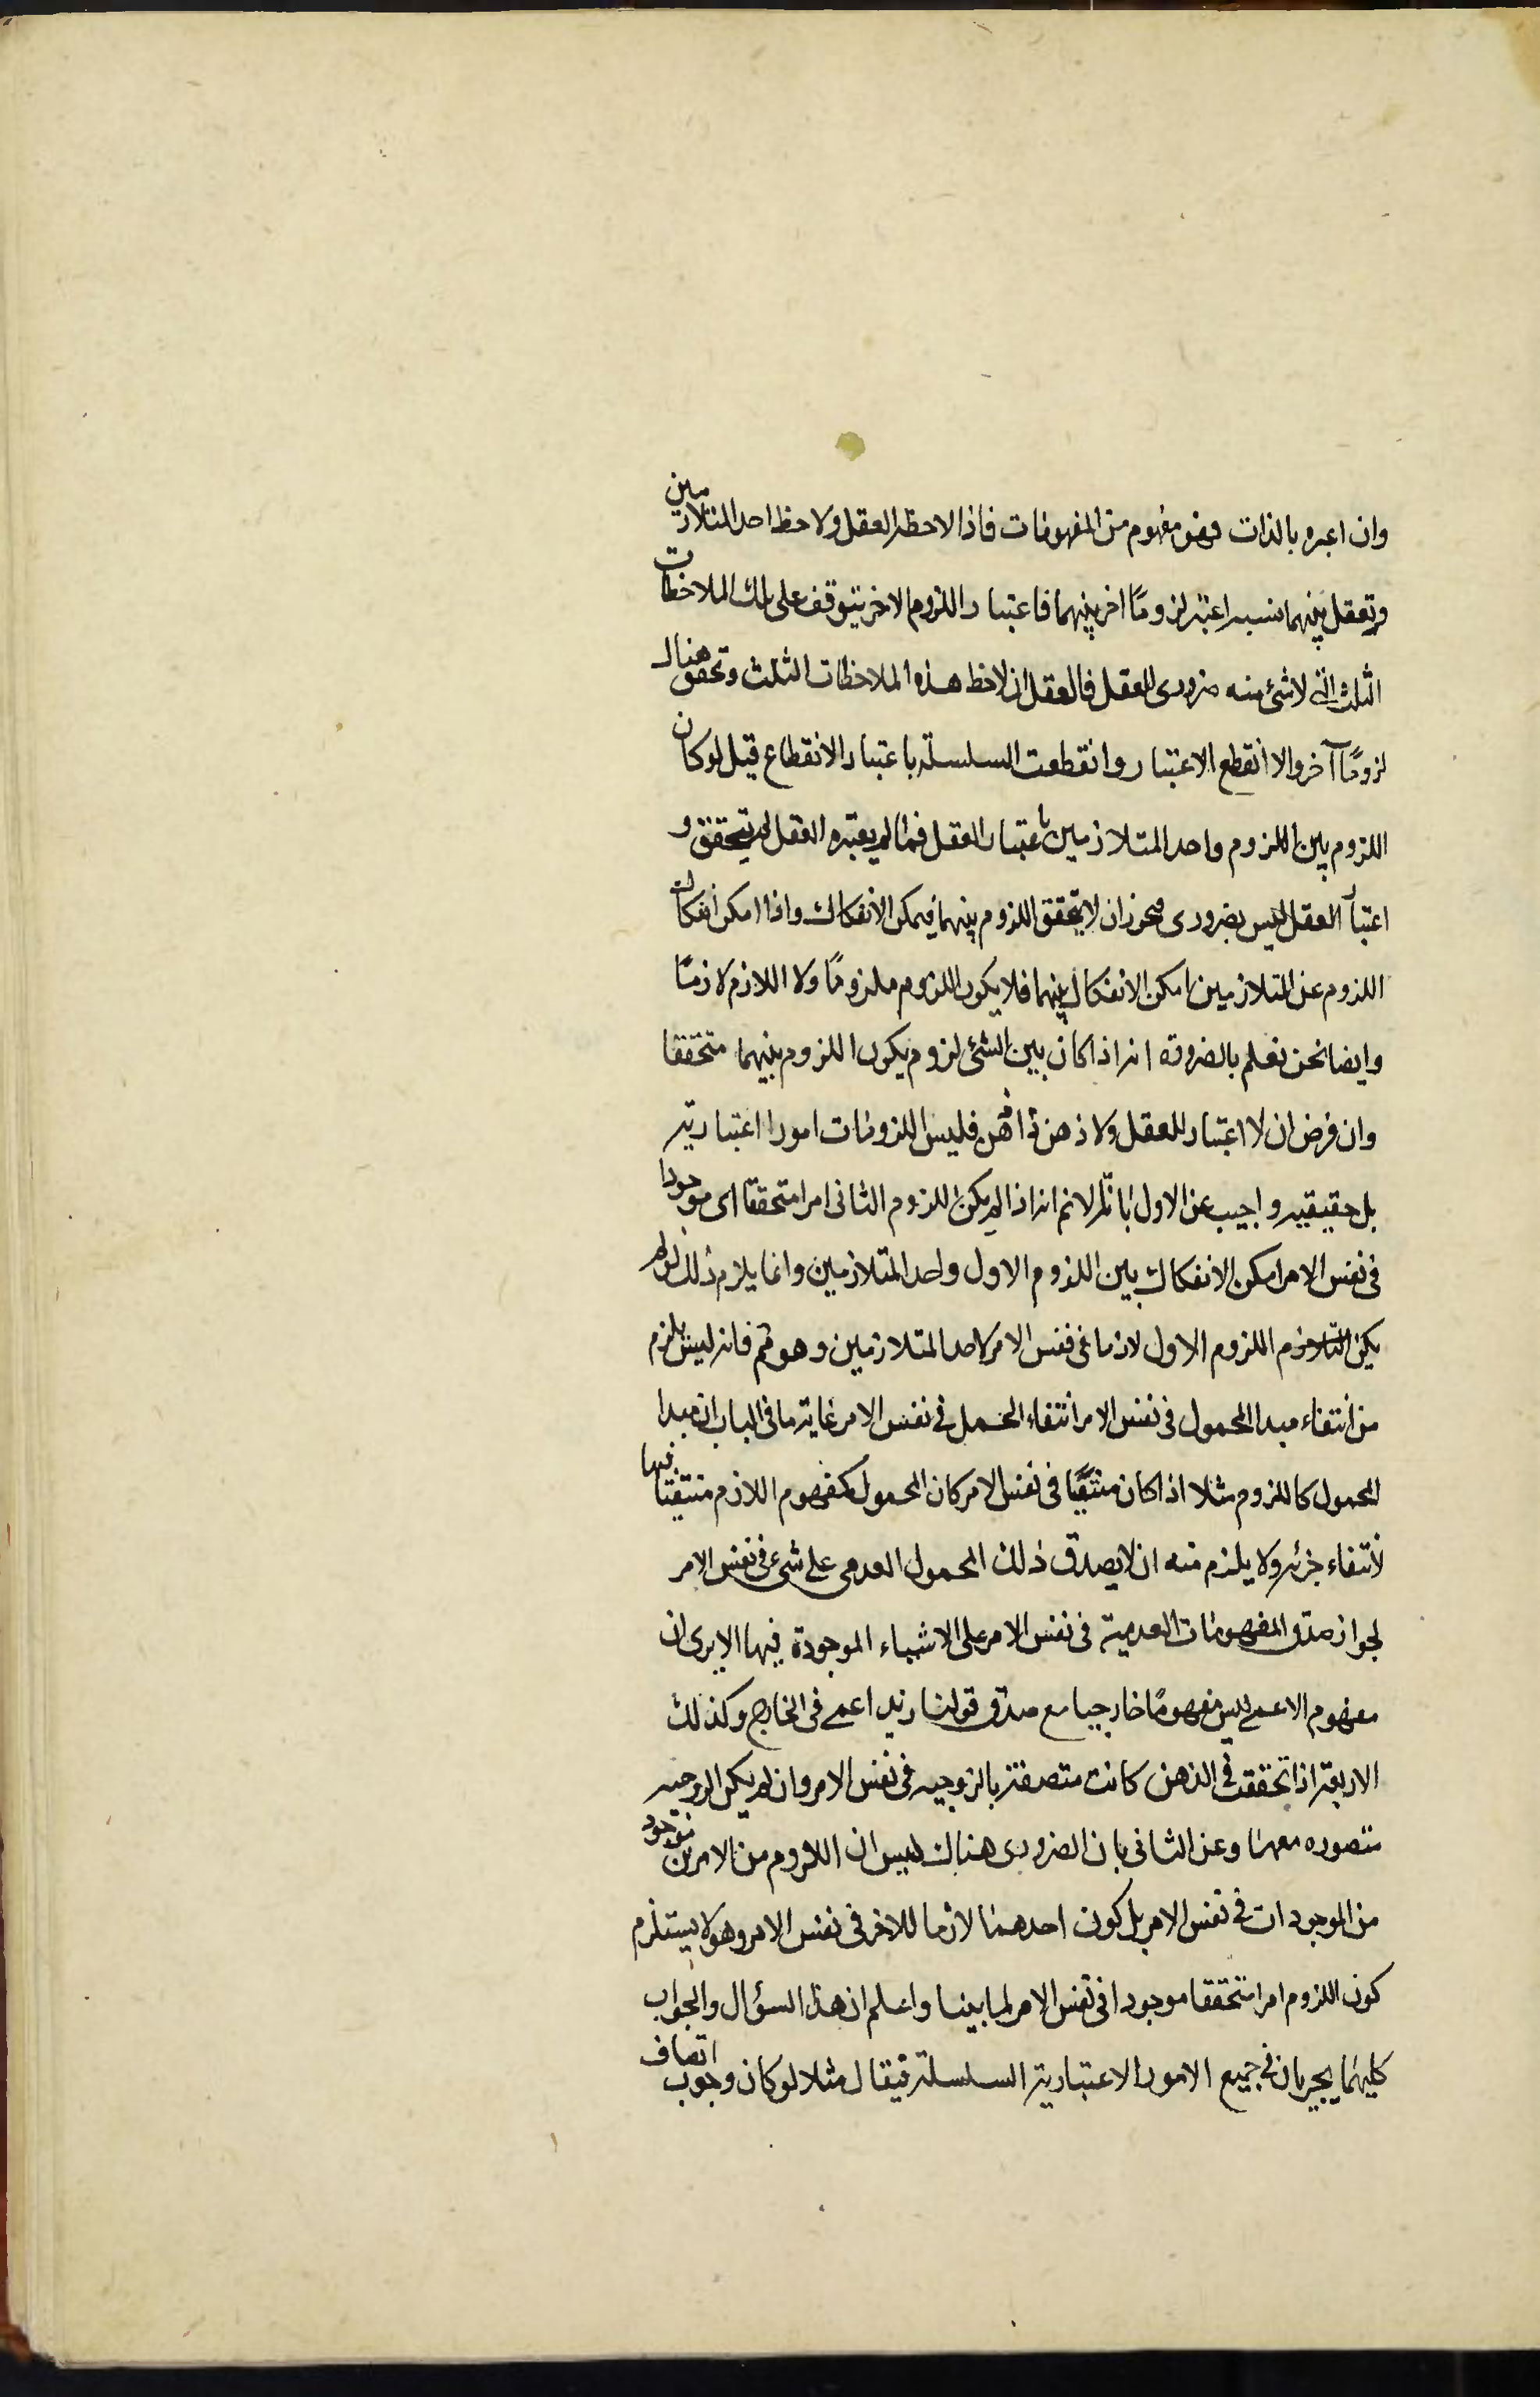 وان اعبره بالذات فهو مفهوم من المفهومات فاذا لاحظه العقل ولاحظ احد المتلازمين
وتعقل بينهما نسبه اعتبر لزومًا اخر بينهما فاعتبار اللزوم الاخر يتوقف على تلك الملاحظات
الثلث التى لا شئ منه ضرورى للعقل فالعقل ان لاحظ هذه الملاحظات الثلث وتحقق هناك
لزومًا آخر والا انقطع الاعتبار وانقطعت السلسلة باعتبار الانقطاع قيل لو كان
اللزوم بين اللزوم واحد المتلازمين باعتبار العقل فما لم يعتبره العقل لم يتحقق و
اعتبار العقل ليس بضرورى فيجوز ان لا يتحقق اللزوم بينهما فيمكن الانفكاك واذا امكن انفكاك
اللزوم عن المتلازمين امكن الانفكاك بينهما فلا يكون اللزوم ملزومًا ولا اللازم لازمًا
وايضا نحن نعلم بالضرورة انه اذا كان بين الشئ لزوم يكون اللزوم بينهما متحققا
وان فرض ان لا اعتبار للعقل ولا ذهن ذاهن فليس اللزومات امورا اعتبارية
بل حقيقيه واجيب عن الاول بانا لا نم انه اذا لم يكن اللزوم الثانى امرا متحققا اى موجودا
فى نفس الامر امكن الانفكاك بين اللزوم الاول واحد المتلازمين وانما يلزم ذلك لو لم
يكن اللزوم الاول لازما فى نفس الامر لاحد المتلازمين وهو مم فانه ليس يلزم
من انتفاء مبدا المحمول فى نفس الامر انتفاء الحمل فى نفس الامر غاية ما فى الباب ان مبدا
المحمول كاللزوم مثلا اذا كان منتفيًا فى نفس الامر كان المحمول كمفهوم اللازم منتفيا فيها
لانتفاء جزئه ولا يلزم منه ان لا يصدق ذلك المحمول العدمى على شئ فى نفس الامر
لجواز صدق المفهومات العدمية فى نفس الامر على الاشياء الموجودة فيها الا يرى ان
مفهوم الاعمى ليس مفهومًا خارجيا مع صدق قولنا زيد اعمى فى الخارج وكذلك
الاربعة اذا تحققت فى الذهن كانت متصفة بالزوجيه فى نفس الامر وان لم يكن الزوجيه
متصوره معها وعن الثانى بان الضرورى هناك ليس ان اللزوم من الامرين موجود
من الموجودات فى نفس الامر بل كون احدهما لازما للاخر فى نفس الامر وهو لا يستلزم
كون اللزوم امرا متحققا موجودا فى نفس الامر لما بينا واعلم ان هذا السؤال والجواب
كليهما يجريان فى جميع الامور الاعتبارية السلسلة فيقال مثلا لو كان وجوب اتصاف